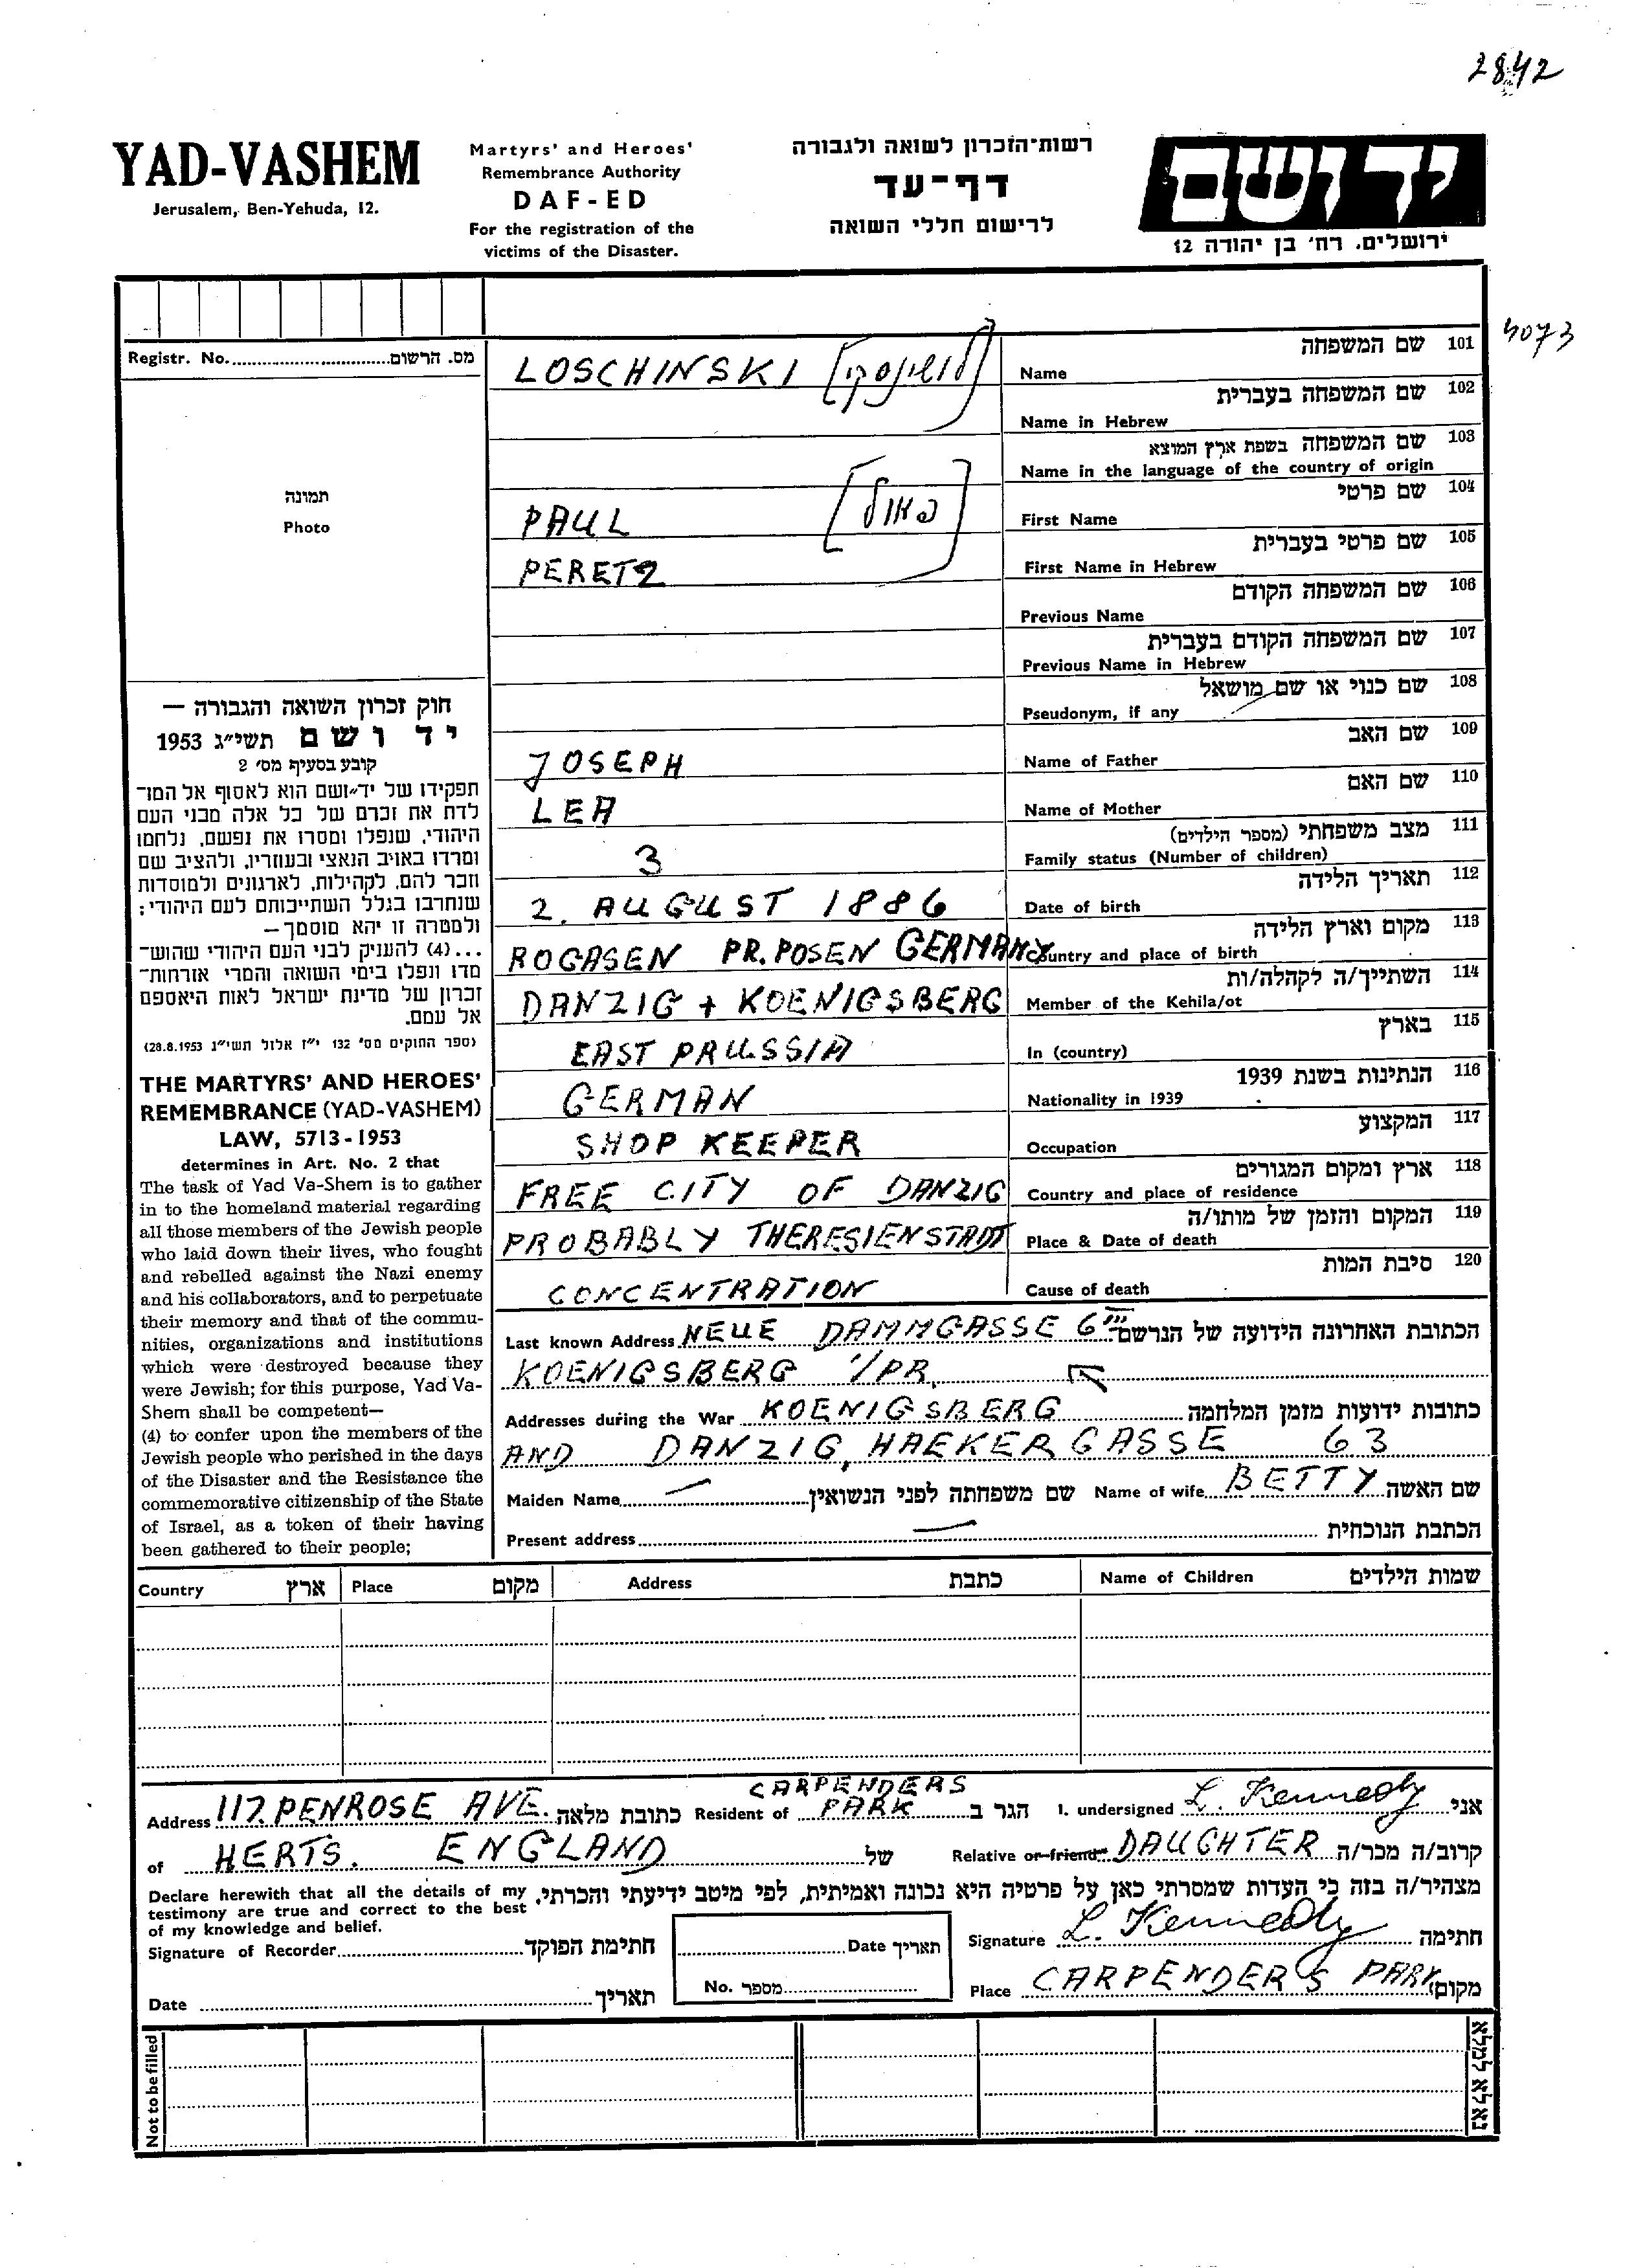 2842
YAD-VASHEM
Jerusalem, Ben-Yehuda, 12.
Martyrs' and Heroes'
Remembrance Authority
DAF-ED
For the registration of the
victims of the Disaster.
רשות־הזכרון לשואה ולגבורה
דף־עד
לרישום חללי השואה
יד ושם
ירושלים, רח' בן יהודה 12
4073
Registr. No. מס. הרשום
תמונה
Photo
LOSCHINSKI [לושינסקי] Name שם המשפחה 101
Name in Hebrew שם המשפחה בעברית 102
Name in the language of the country of origin שם המשפחה בשפת ארץ המוצא 103
PAUL [פאול] First Name שם פרטי 104
PERETZ First Name in Hebrew שם פרטי בעברית 105
Previous Name שם המשפחה הקודם 106
Previous Name in Hebrew שם המשפחה הקודם בעברית 107
Pseudonym, if any שם כנוי או שם מושאל 108
JOSEPH Name of Father שם האב 109
LEA Name of Mother שם האם 110
3 Family status (Number of children) מצב משפחתי (מספר הילדים) 111
2. AUGUST 1886 Date of birth תאריך הלידה 112
ROGASEN PR. POSEN GERMANY Country and place of birth מקום וארץ הלידה 113
DANZIG + KOENIGSBERG Member of the Kehila/ot השתייך/ה לקהלה/ות 114
EAST PRUSSIA In (country) בארץ 115
GERMAN Nationality in 1939 הנתינות בשנת 1939 116
SHOP KEEPER Occupation המקצוע 117
FREE CITY OF DANZIG Country and place of residence ארץ ומקום המגורים 118
PROBABLY THERESIENSTADT Place & Date of death המקום והזמן של מותו/ה 119
CONCENTRATION Cause of death סיבת המות 120
חוק זכרון השואה והגבורה —
יד ושם תשי״ג 1953
קובע בסעיף מס' 2
תפקידו של יד־ושם הוא לאסוף אל המו־
לדת את זכרם של כל אלה מבני העם
היהודי, שנפלו ומסרו את נפשם, נלחמו
ומרדו באויב הנאצי ובעוזריו, ולהציב שם
וזכר להם, לקהילות, לארגונים ולמוסדות
שנחרבו בגלל השתייכותם לעם היהודי;
ולמטרה זו יהא מוסמך—
...(4) להעניק לבני העם היהודי שהוש־
מדו ונפלו בימי השואה והמרי אזרחות־
זכרון של מדינת ישראל לאות היאספם
אל עמם.
(ספר החוקים מס' 132 י״ז אלול תשי״ג 28.8.1953)
THE MARTYRS' AND HEROES'
REMEMBRANCE (YAD-VASHEM)
LAW, 5713-1953
determines in Art. No. 2 that
The task of Yad Va-Shem is to gather
in to the homeland material regarding
all those members of the Jewish people
who laid down their lives, who fought
and rebelled against the Nazi enemy
and his collaborators, and to perpetuate
their memory and that of the commu-
nities, organizations and institutions
which were destroyed because they
were Jewish; for this purpose, Yad Va-
Shem shall be competent—
(4) to confer upon the members of the
Jewish people who perished in the days
of the Disaster and the Resistance the
commemorative citizenship of the State
of Israel, as a token of their having
been gathered to their people;
Last known Address NEUE DAMMGASSE 6III הכתובת האחרונה הידועה של הנרשם
KOENIGSBERG I/PR.
Addresses during the War KOENIGSBERG כתובות ידועות מזמן המלחמה
AND DANZIG, HAEKERGASSE 63
Maiden Name — שם משפחתה לפני הנשואין Name of wife BETTY שם האשה
Present address — הכתבת הנוכחית
Country ארץ Place מקום Address כתבת Name of Children שמות הילדים
Address 117. PENROSE AVE. כתובת מלאה Resident of CARPENDERS PARK הגר ב I. undersigned L. Kennedy אני
of HERTS. ENGLAND של Relative or friend DAUGHTER קרוב/ה מכר/ה
Declare herewith that all the details of my
testimony are true and correct to the best
of my knowledge and belief.
מצהיר/ה בזה כי העדות שמסרתי כאן על פרטיה היא נכונה ואמיתית, לפי מיטב ידיעתי והכרתי.
Signature of Recorder חתימת הפוקד Date תאריך Signature L. Kennedy חתימה
Date תאריך No. מספר Place CARPENDERS PARK מקום
Not to be filled נא לא למלא